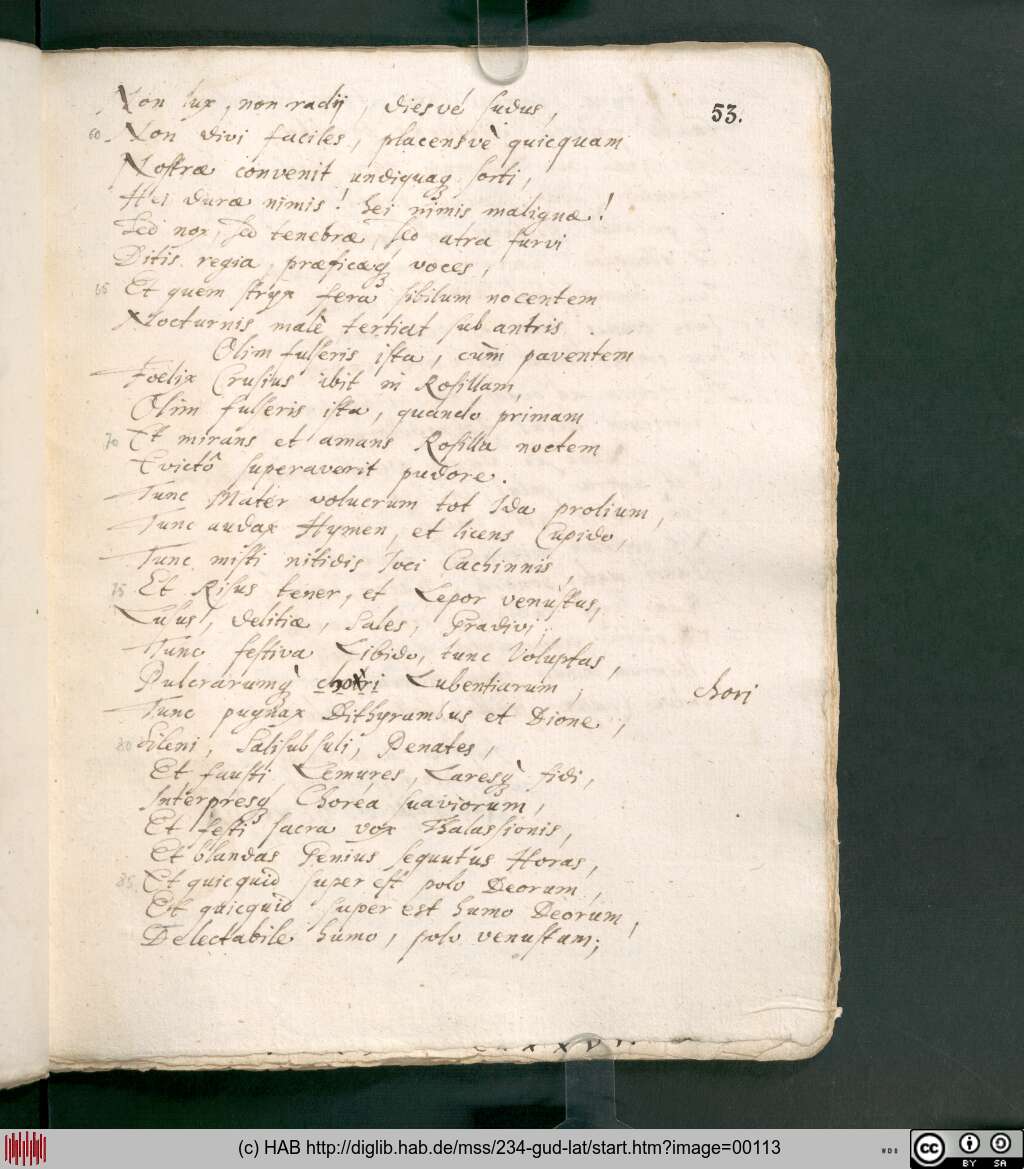 53.
Non lux, non radij, diesvé sudus,
60. Non divi faciles, placensvè quicquam
Nostræ convenit undiquaq₃ sorti,
Hei duræ nimis! hei nimis malignæ!
Sed nox, sed tenebræ, sed atra furvi
Ditis regia, præficæq₃ voces,
65 Et quem stryx fera sibilum nocentem
Nocturnis malè tertiat sub antris.
Olim fulseris ista, cùm paventem
Foelix Crusius ibit in Rosillam,
Olim fulseris ista, quando primam
70 Et mirans et amans Rosilla noctem
Evictô superaverit pudore.
Tunc Mater volucrum tot Ida prolium,
Tunc audax Hymen, et licens Cupido,
Tunc misti nitidis Joci Cachinnis,
75 Et Risus tener, et Lepor venustus,
Lusus, delitiæ, Sales, Gradivi;
Tunc festiva Libido, tunc Voluptas,
Pulcrarumq₃ chori Lubentiarum, chori
Tunc pugnax Dithyrambus et Dione,
80 Sileni, Salisubsuli, Penates,
Et fausti Lemures, Laresq₃ fidi,
Interpresq₃ Choréa suaviorum,
Et festi sacra vox Thalassionis,
Et blandas Genius sequutus Horas,
85. Et quicquid super est polo Deorum,
Et quicquid super est humo Deorum,
Delectabile humo, polo venustam;
(c) HAB http://diglib.hab.de/mss/234-gud-lat/start.htm?image=00113
HAB
cc BY SA